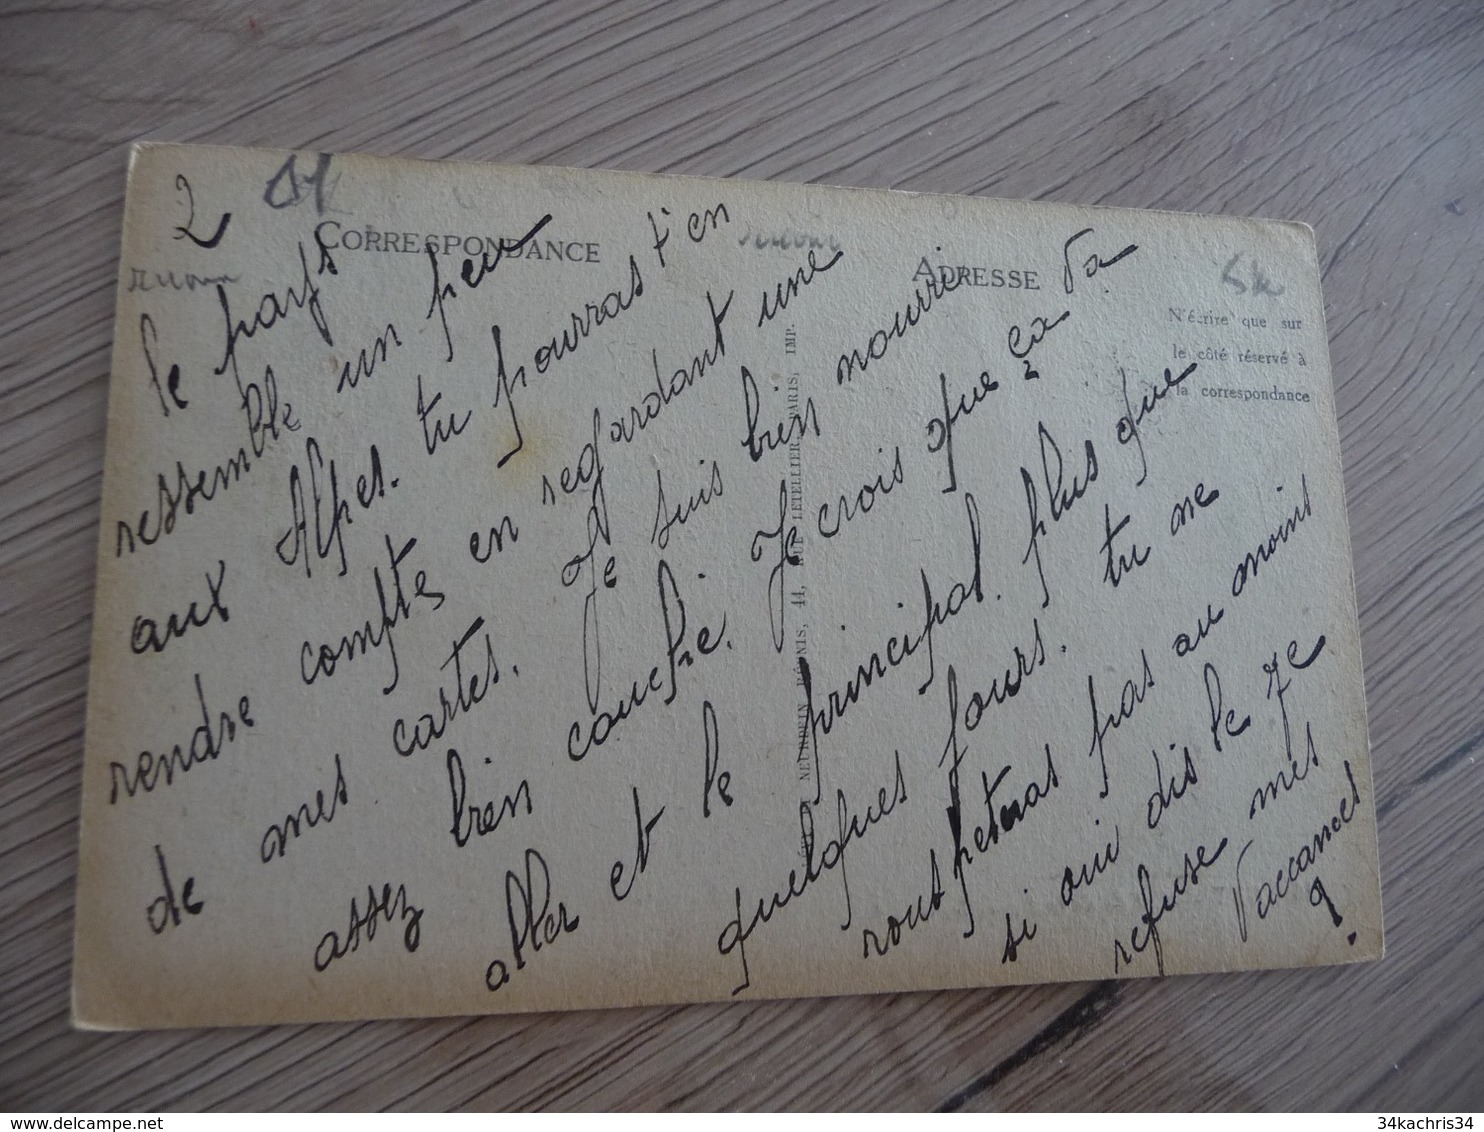 2
CORRESPONDANCE
ADRESSE
N'écrire que sur
le côté réservé à
la correspondance
le pays
ressemble un peu
aux Alpes. tu pourras t'en
rendre compte en regardant une
de mes cartes. Je suis bien nourri
assez bien couché. Je crois que ça va
aller et le principal. plus que
quelques jours. tu ne
rouspeteras pas au moins
si oui dis le je
refuse mes
vaccances
?
NEURDEIN RÉUNIS, 44, RUE LETELLIER, PARIS, IMP.
34kachris34